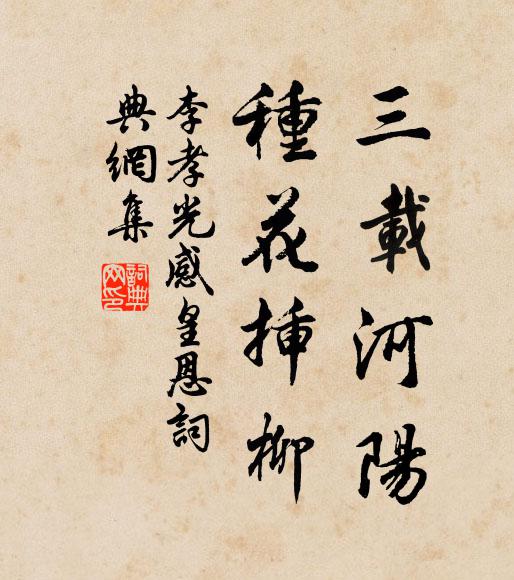 三載河陽
種花插柳
李孝光感皇恩詞
典網集
詞典網印